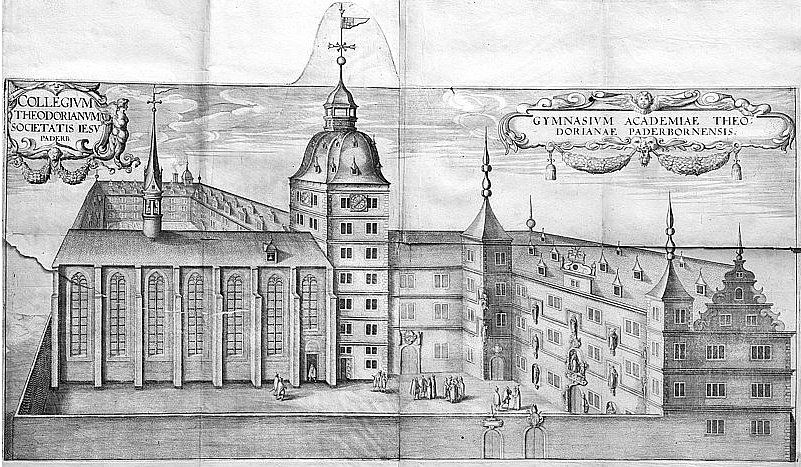 COLLEGIVM
THEODORIANVM
SOCIETATIS IESV
PADERB.
GYMNASIVM ACADEMIAE THEO
DORIANAE PADERBORNENSIS.